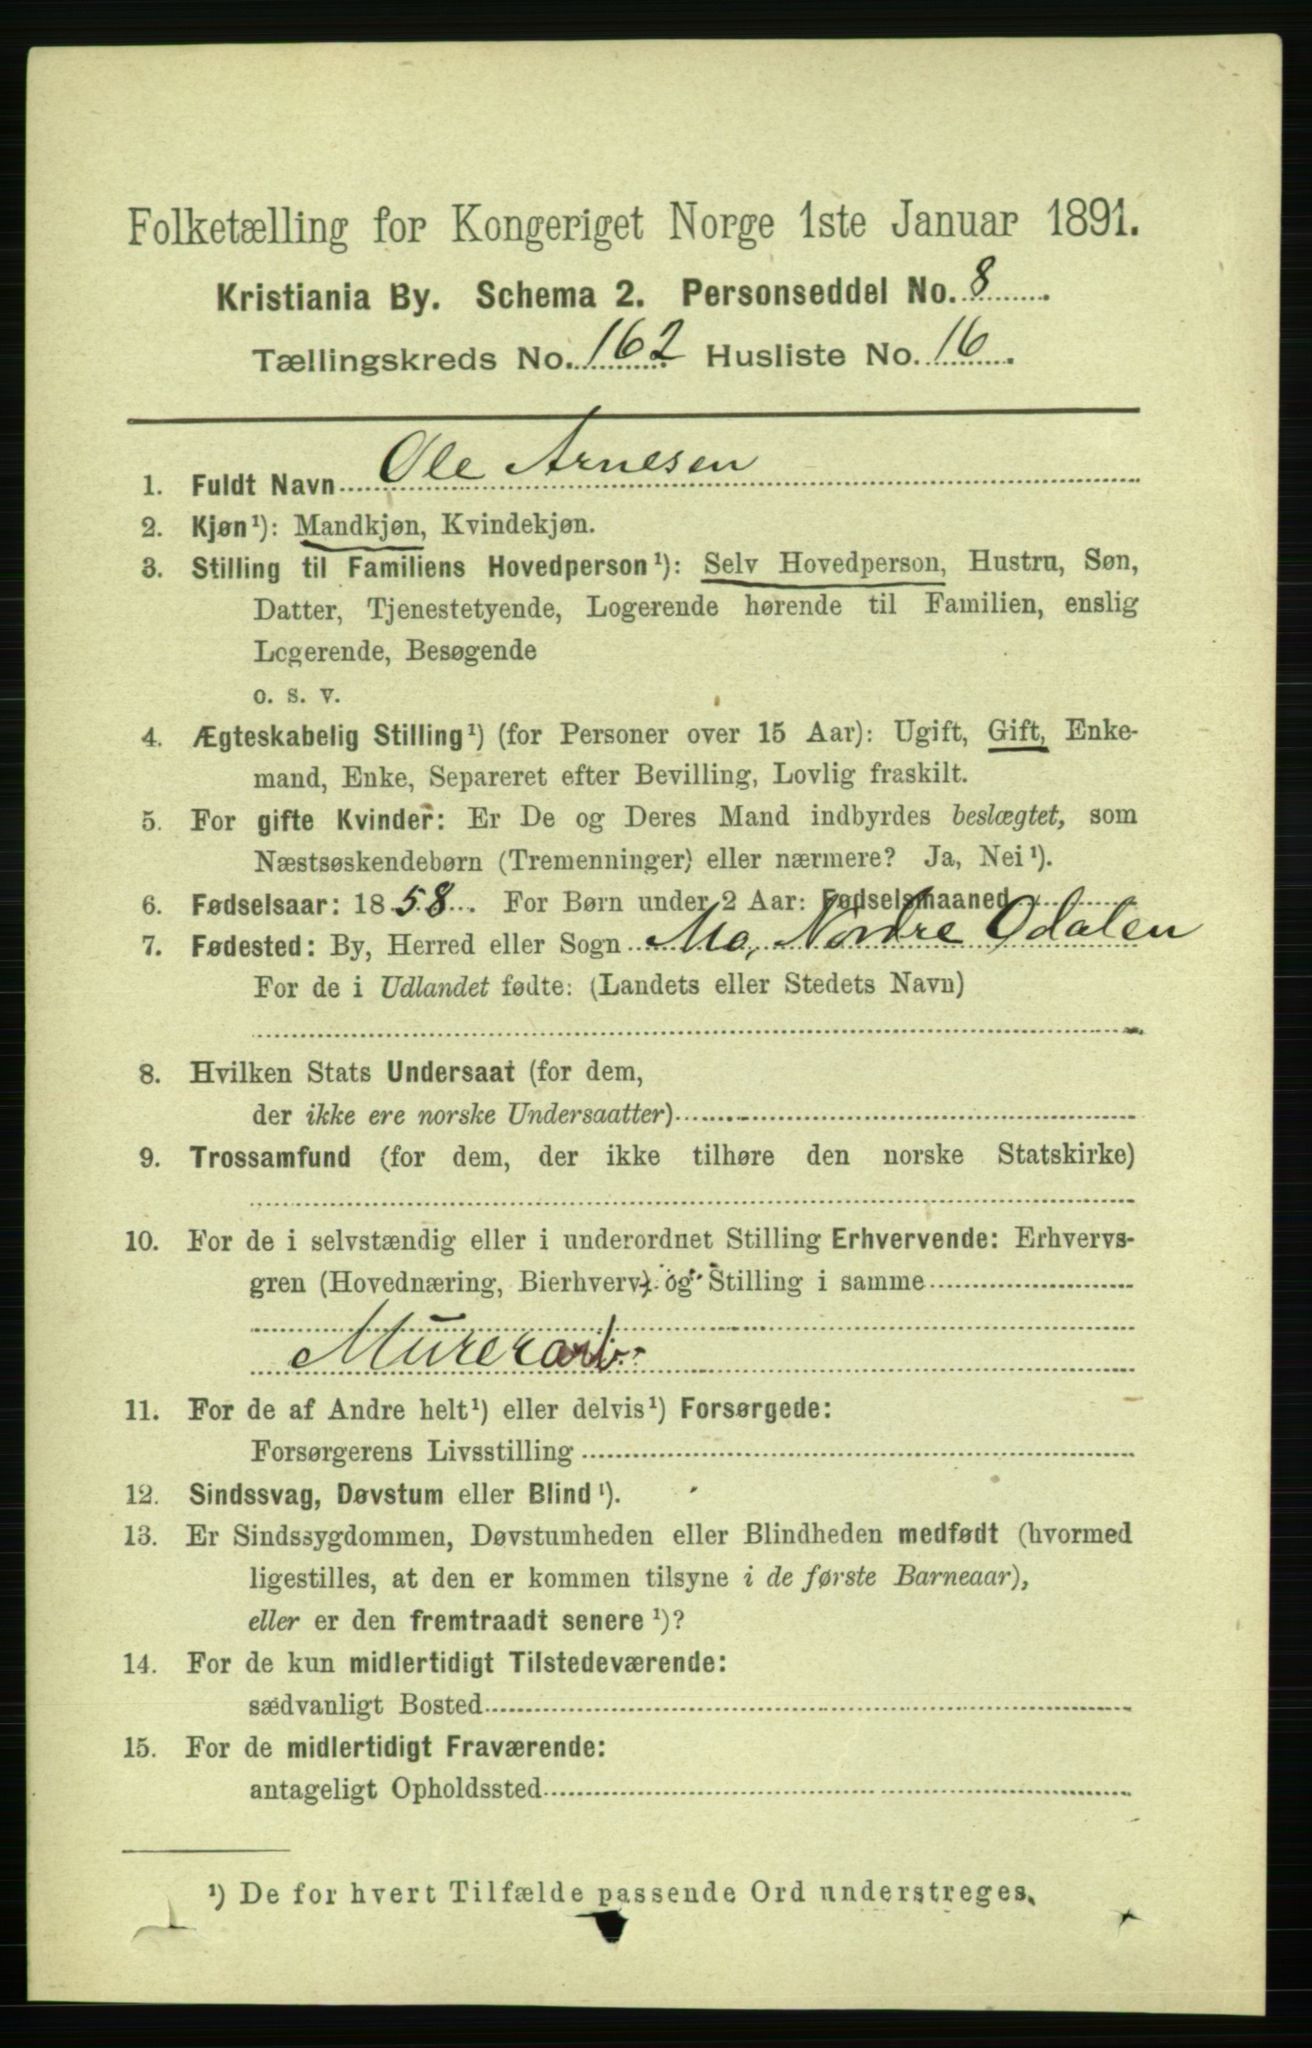 Folketælling for Kongeriget Norge 1ste Januar 1891.
Kristiania By. Schema 2. Personseddel No. 8
Tællingskreds No. 162 Husliste No. 16
1. Fuldt Navn Ole Arnesen
2. Kjøn¹): Mandkjøn, Kvindekjøn.
3. Stilling til Familiens Hovedperson¹): Selv Hovedperson, Hustru, Søn,
Datter, Tjenestetyende, Logerende hørende til Familien, enslig
Logerende, Besøgende
o. s. v.
4. Ægteskabelig Stilling¹) (for Personer over 15 Aar): Ugift, Gift, Enke-
mand, Enke, Separeret efter Bevilling, Lovlig fraskilt.
5. For gifte Kvinder: Er De og Deres Mand indbyrdes beslægtet, som
Næstsøskendebørn (Tremenninger) eller nærmere? Ja, Nei¹).
6. Fødselsaar: 1858. For Børn under 2 Aar: Fødselsmaaned
7. Fødested: By, Herred eller Sogn Mo, Nordre Odalen
For de i Udlandet fødte: (Landets eller Stedets Navn)
8. Hvilken Stats Undersaat (for dem,
der ikke ere norske Undersaatter)
9. Trossamfund (for dem, der ikke tilhøre den norske Statskirke)
10. For de i selvstændig eller i underordnet Stilling Erhvervende: Erhvervs-
gren (Hovednæring, Bierhverv) og Stilling i samme
Murerarb.
11. For de af Andre helt¹) eller delvis¹) Forsørgede:
Forsørgerens Livsstilling
12. Sindssvag, Døvstum eller Blind¹).
13. Er Sindssygdommen, Døvstumheden eller Blindheden medfødt (hvormed
ligestilles, at den er kommen tilsyne i de første Barneaar),
eller er den fremtraadt senere¹)?
14. For de kun midlertidigt Tilstedeværende:
sædvanligt Bosted
15. For de midlertidigt Fraværende:
antageligt Opholdssted
¹) De for hvert Tilfælde passende Ord understreges.